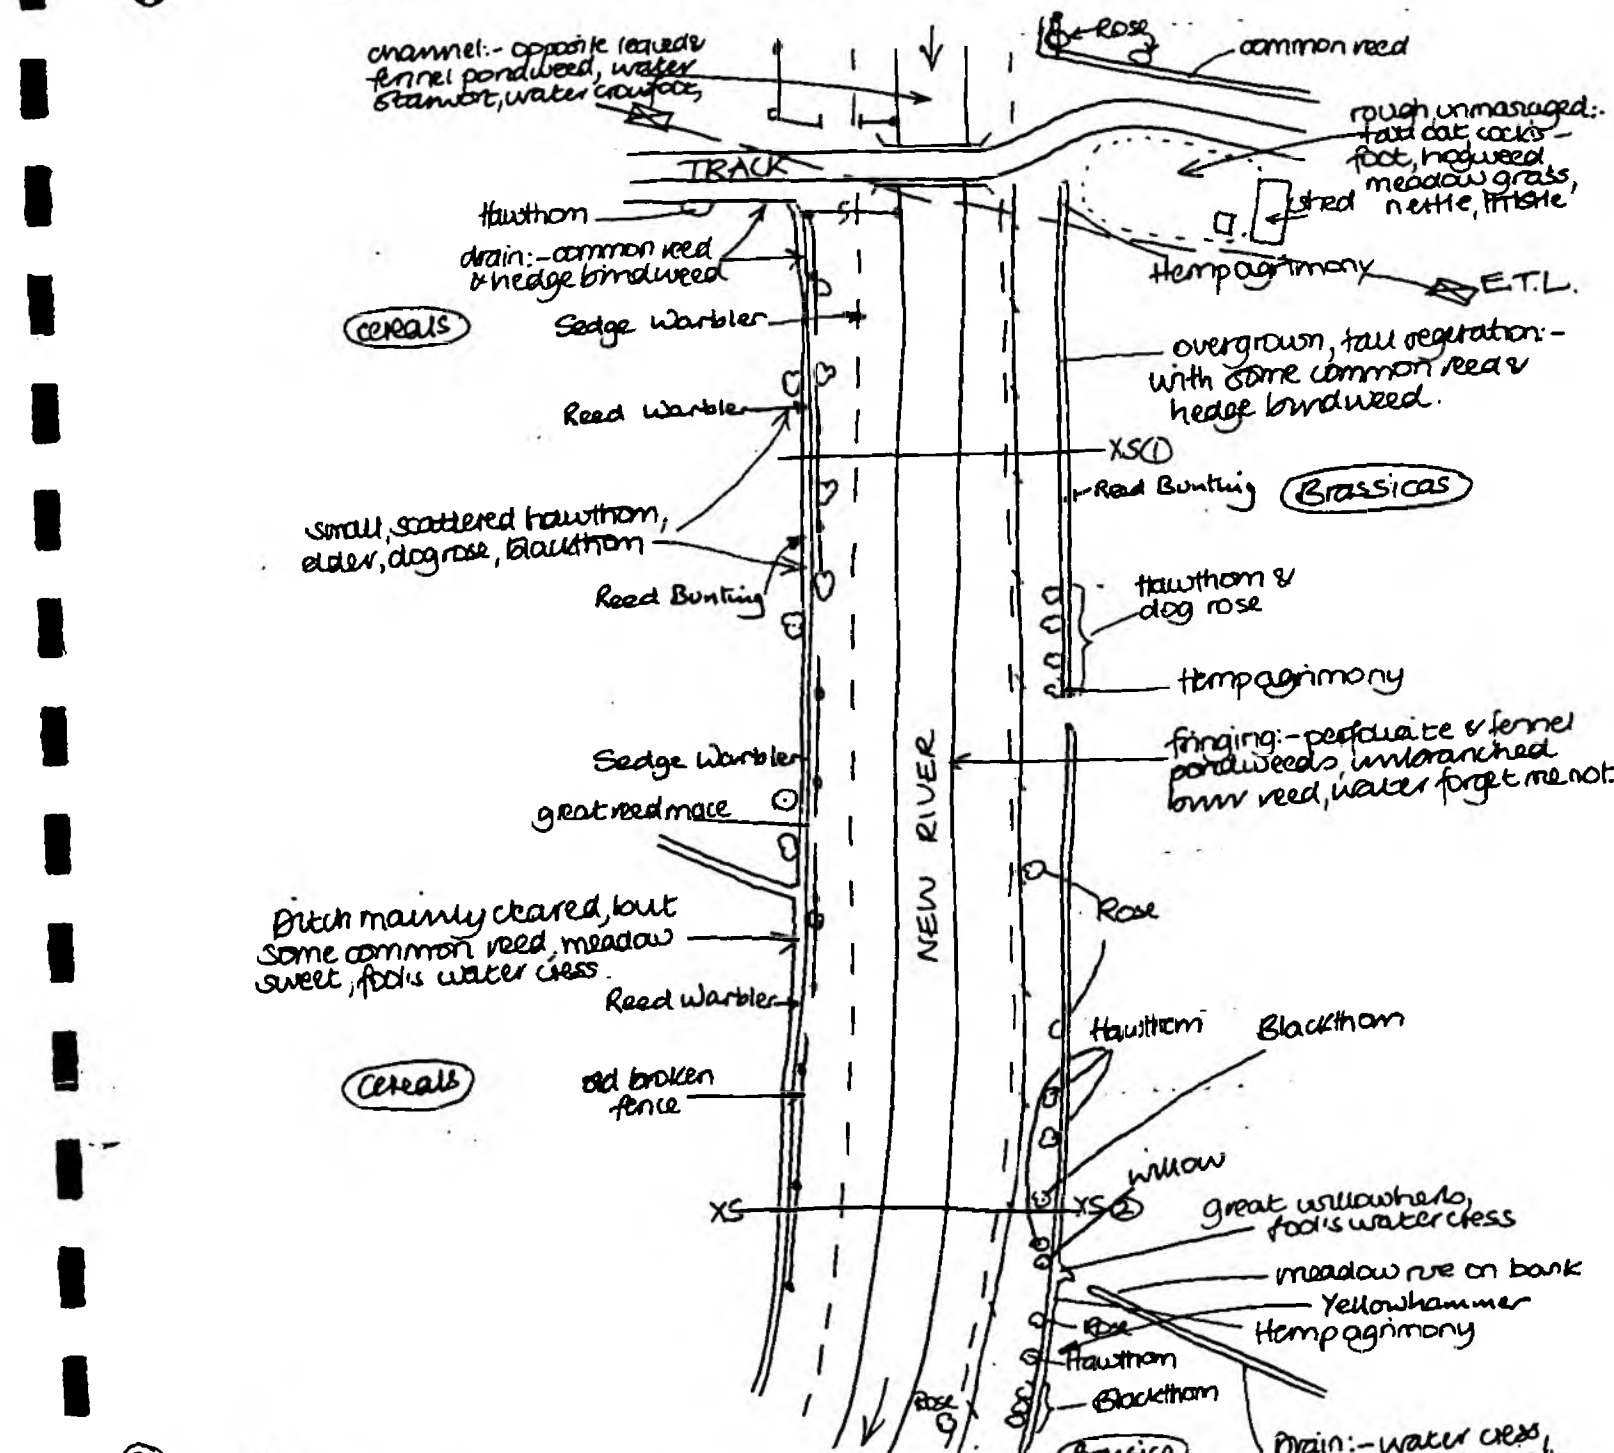 channel:- opposite leaved &
fennel pondweed, water
starwort, water crowfoot,
Rose
common reed
rough unmanaged:-
oat, cocks-
foot, hogweed,
meadow grass,
nettle, thistle
TRACK
shed
Hawthorn
drain:- common reed
& hedge bindweed
Hemp agrimony
E.T.L.
cereals
Sedge Warbler
overgrown, tall vegetation:-
with some common reed &
hedge bindweed.
Reed Warbler
XS①
Reed Bunting
Brassicas
small, scattered hawthorn,
elder, dogrose, blackthorn
Reed Bunting
Hawthorn &
dog rose
Hemp agrimony
NEW RIVER
fringing:- perfoliate & fennel
pondweeds, unbranched
burr reed, water forget me not.
Sedge Warbler
great reedmace
Rose
Ditch mainly cleared, but
some common reed, meadow
sweet, fool's water cress.
Reed Warbler
Hawthorn
Blackthorn
cereals
old broken
fence
willow
XS
XS②
great willowherb,
fool's watercress
meadow rue on bank
Yellowhammer
Hemp agrimony
Rose
Hawthorn
Blackthorn
Rose
Drain:- water cress,